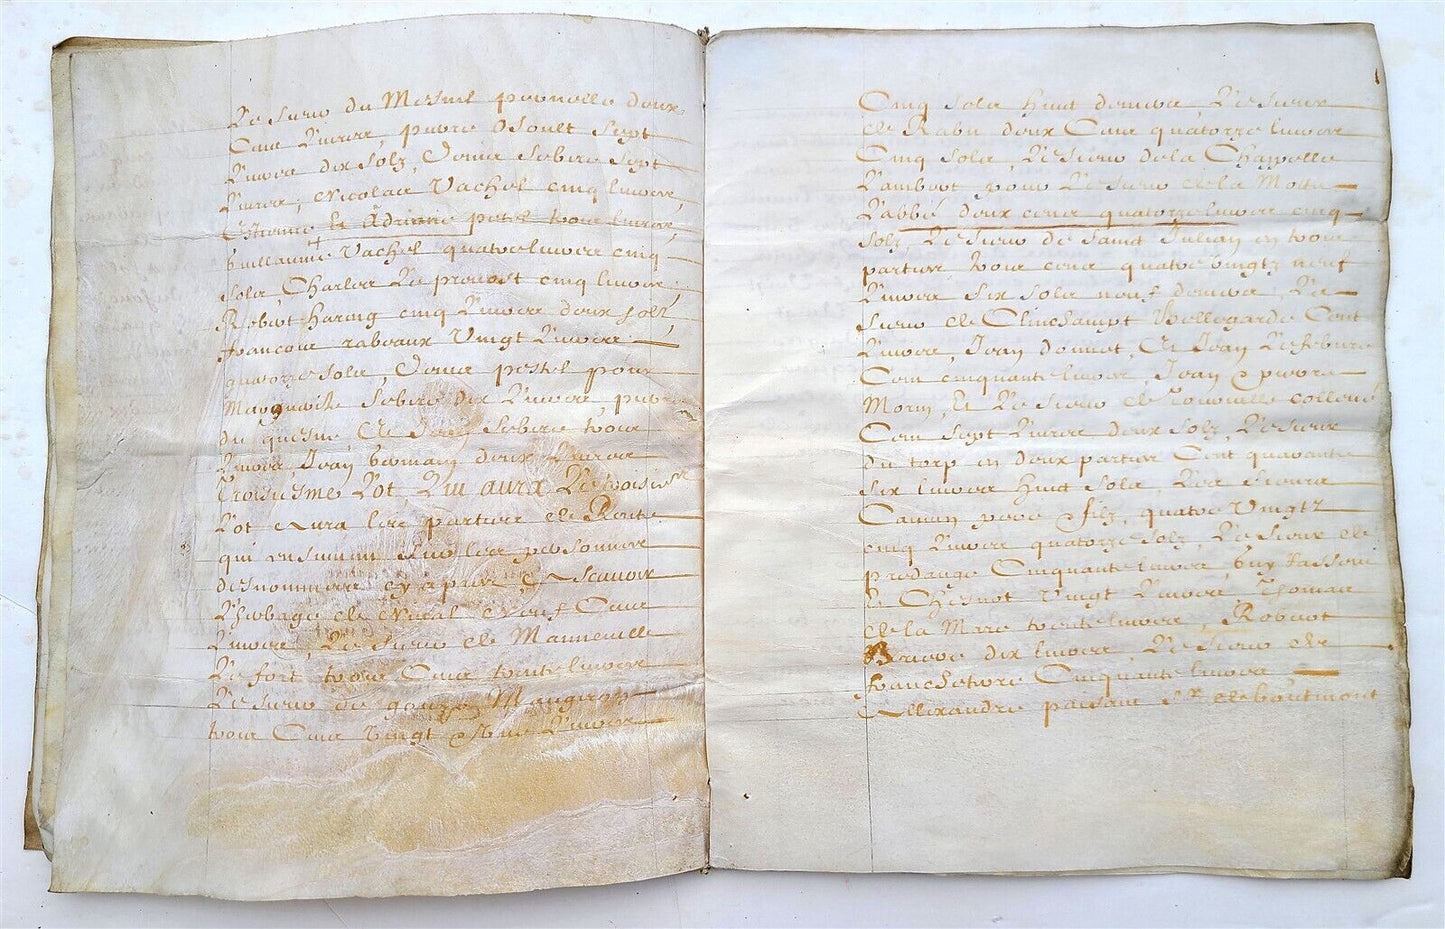 Le sieur du Mesnil pernelle deux
Cens Livres, pierre Osoult sept
Livres dix solz, Denis Sebire sept
Livres, Nicolas Vachel cinq livres,
Estienne et Adrienne petel trois livres,
Guillaume Vachel quatre livres cinq
solz, Charles Le provost cinq livres,
Robert haring cinq Livres deux solz,
francois rabeaux Vingt Livres
quatorze solz, Denis pestel pour
Marguerite Sebire dix Livres, pierre
du quesne et Sebire trois
Livres Jean germain deux Livres
Troisiesme Lot Qui aura Le troisieme
Lot Aura les parties de Rente
qui ensuivent sur les personnes
desnommees cy apres, Scavoir
L'herbage de Neuf Cens
Livres, Le Sieur de Manneville
Le fort trois Cens trente livres
Le sieur de Maugeron
trois Cens vingt Livres
Cinq solz huit deniers Le sieur
de Rabu deux Cens quatorze livres
Cinq solz, Le sieur de la Chappelle
Lambert pour Le sieur de la Motte
Labbé deux cens quatorze livres cinq
solz, Le sieur de Saint Julian en trois
parties trois cens quatre vingtz neuf
Livres six solz neuf deniers, Le
sieur de Clinchampt Bellegarde Cent
Livres, Jean donnet, et Jean Lefebure
Cent cinquante livres, Jean et pierre
Morin, et Le sieur de Touville
Cent sept Livres deux solz, Le sieur
du torp en deux parties Cent quarante
six livres huit solz, Les sieurs
pere et filz, quatre Vingtz
cinq Livres quatorze solz, Le sieur de
predauge Cinquante livres, guy
du Chesnot Vingt Livres, Thomas
de la Mare trente livres, Robert
dix livres, Le sieur de
Cinquante livres
Allexandre paisant sr de boutmont